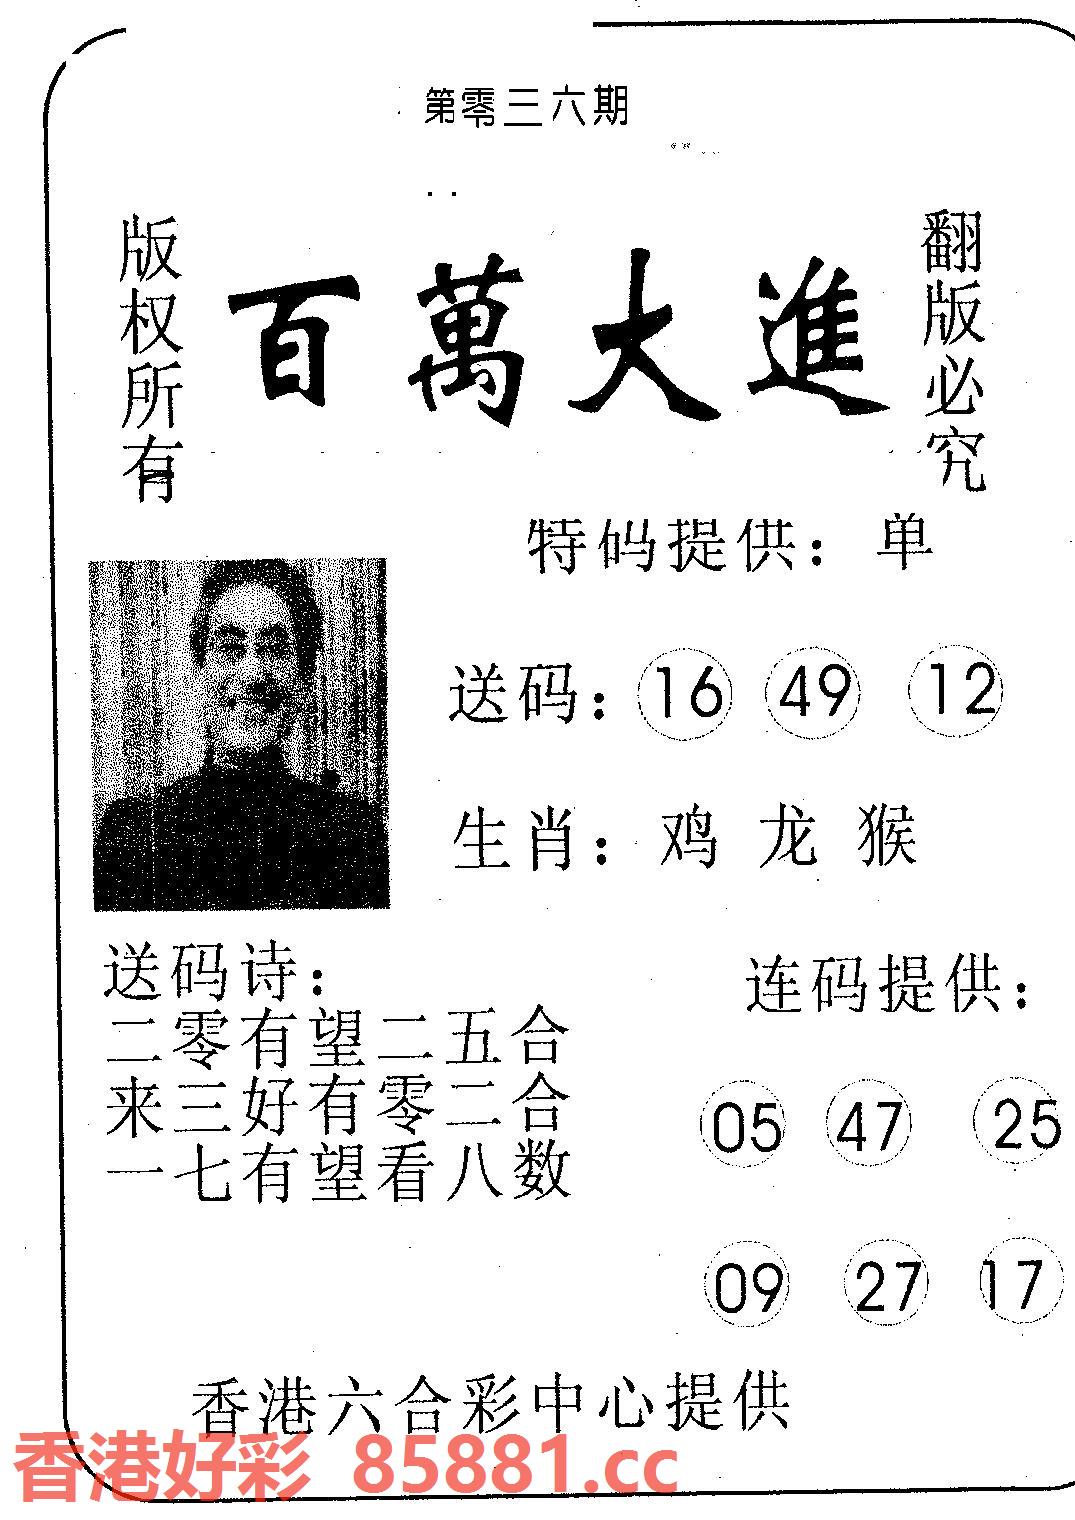 第零三六期
版权所有
百萬大進
翻版必究
特码提供：单
送码：16 49 12
生肖：鸡 龙 猴
送码诗：
二零有望二五合
来三好有零二合
一七有望看八数
连码提供：
05 47 25
09 27 17
香港六合彩中心提供
香港好彩 85881.cc